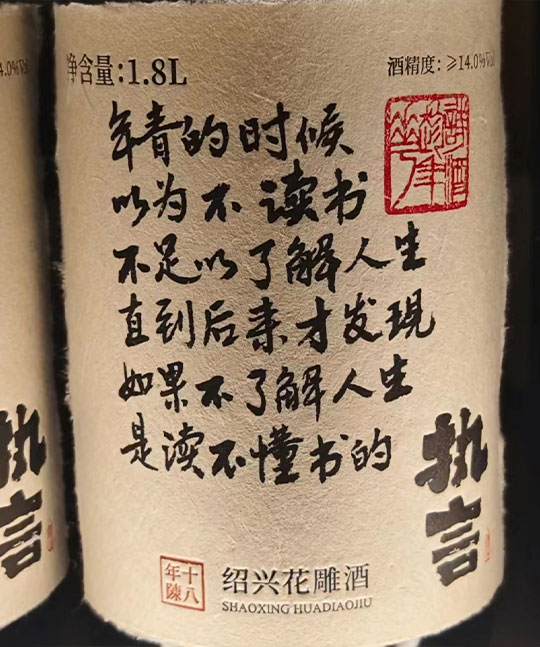 净含量:1.8L
酒精度:≥14.0%Vol
年青的时候
以为不读书
不足以了解人生
直到后来才发现
如果不了解人生
是读不懂书的
执言
十八年陳
绍兴花雕酒
SHAOXING HUADIAOJIU